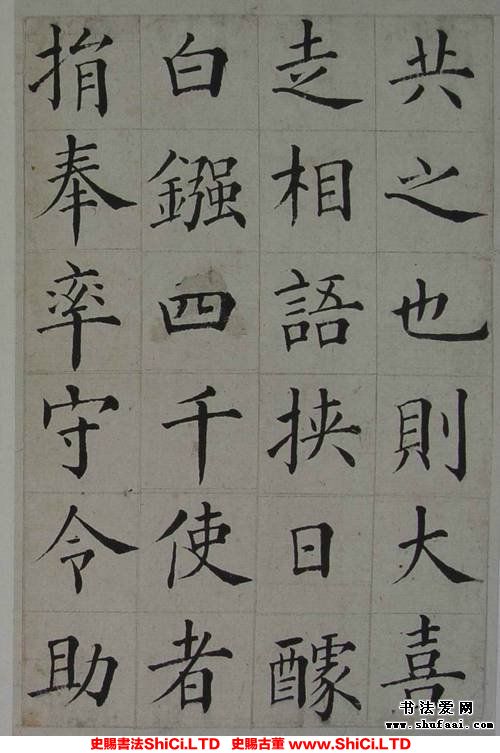 共之也則大喜
走相語挟日醵
白鏹四千使者
捐奉率守令助
书法爱网
www.shufaai.com
史賜書法ShiCi.LTD 史賜古董 www.ShiCi.LTD